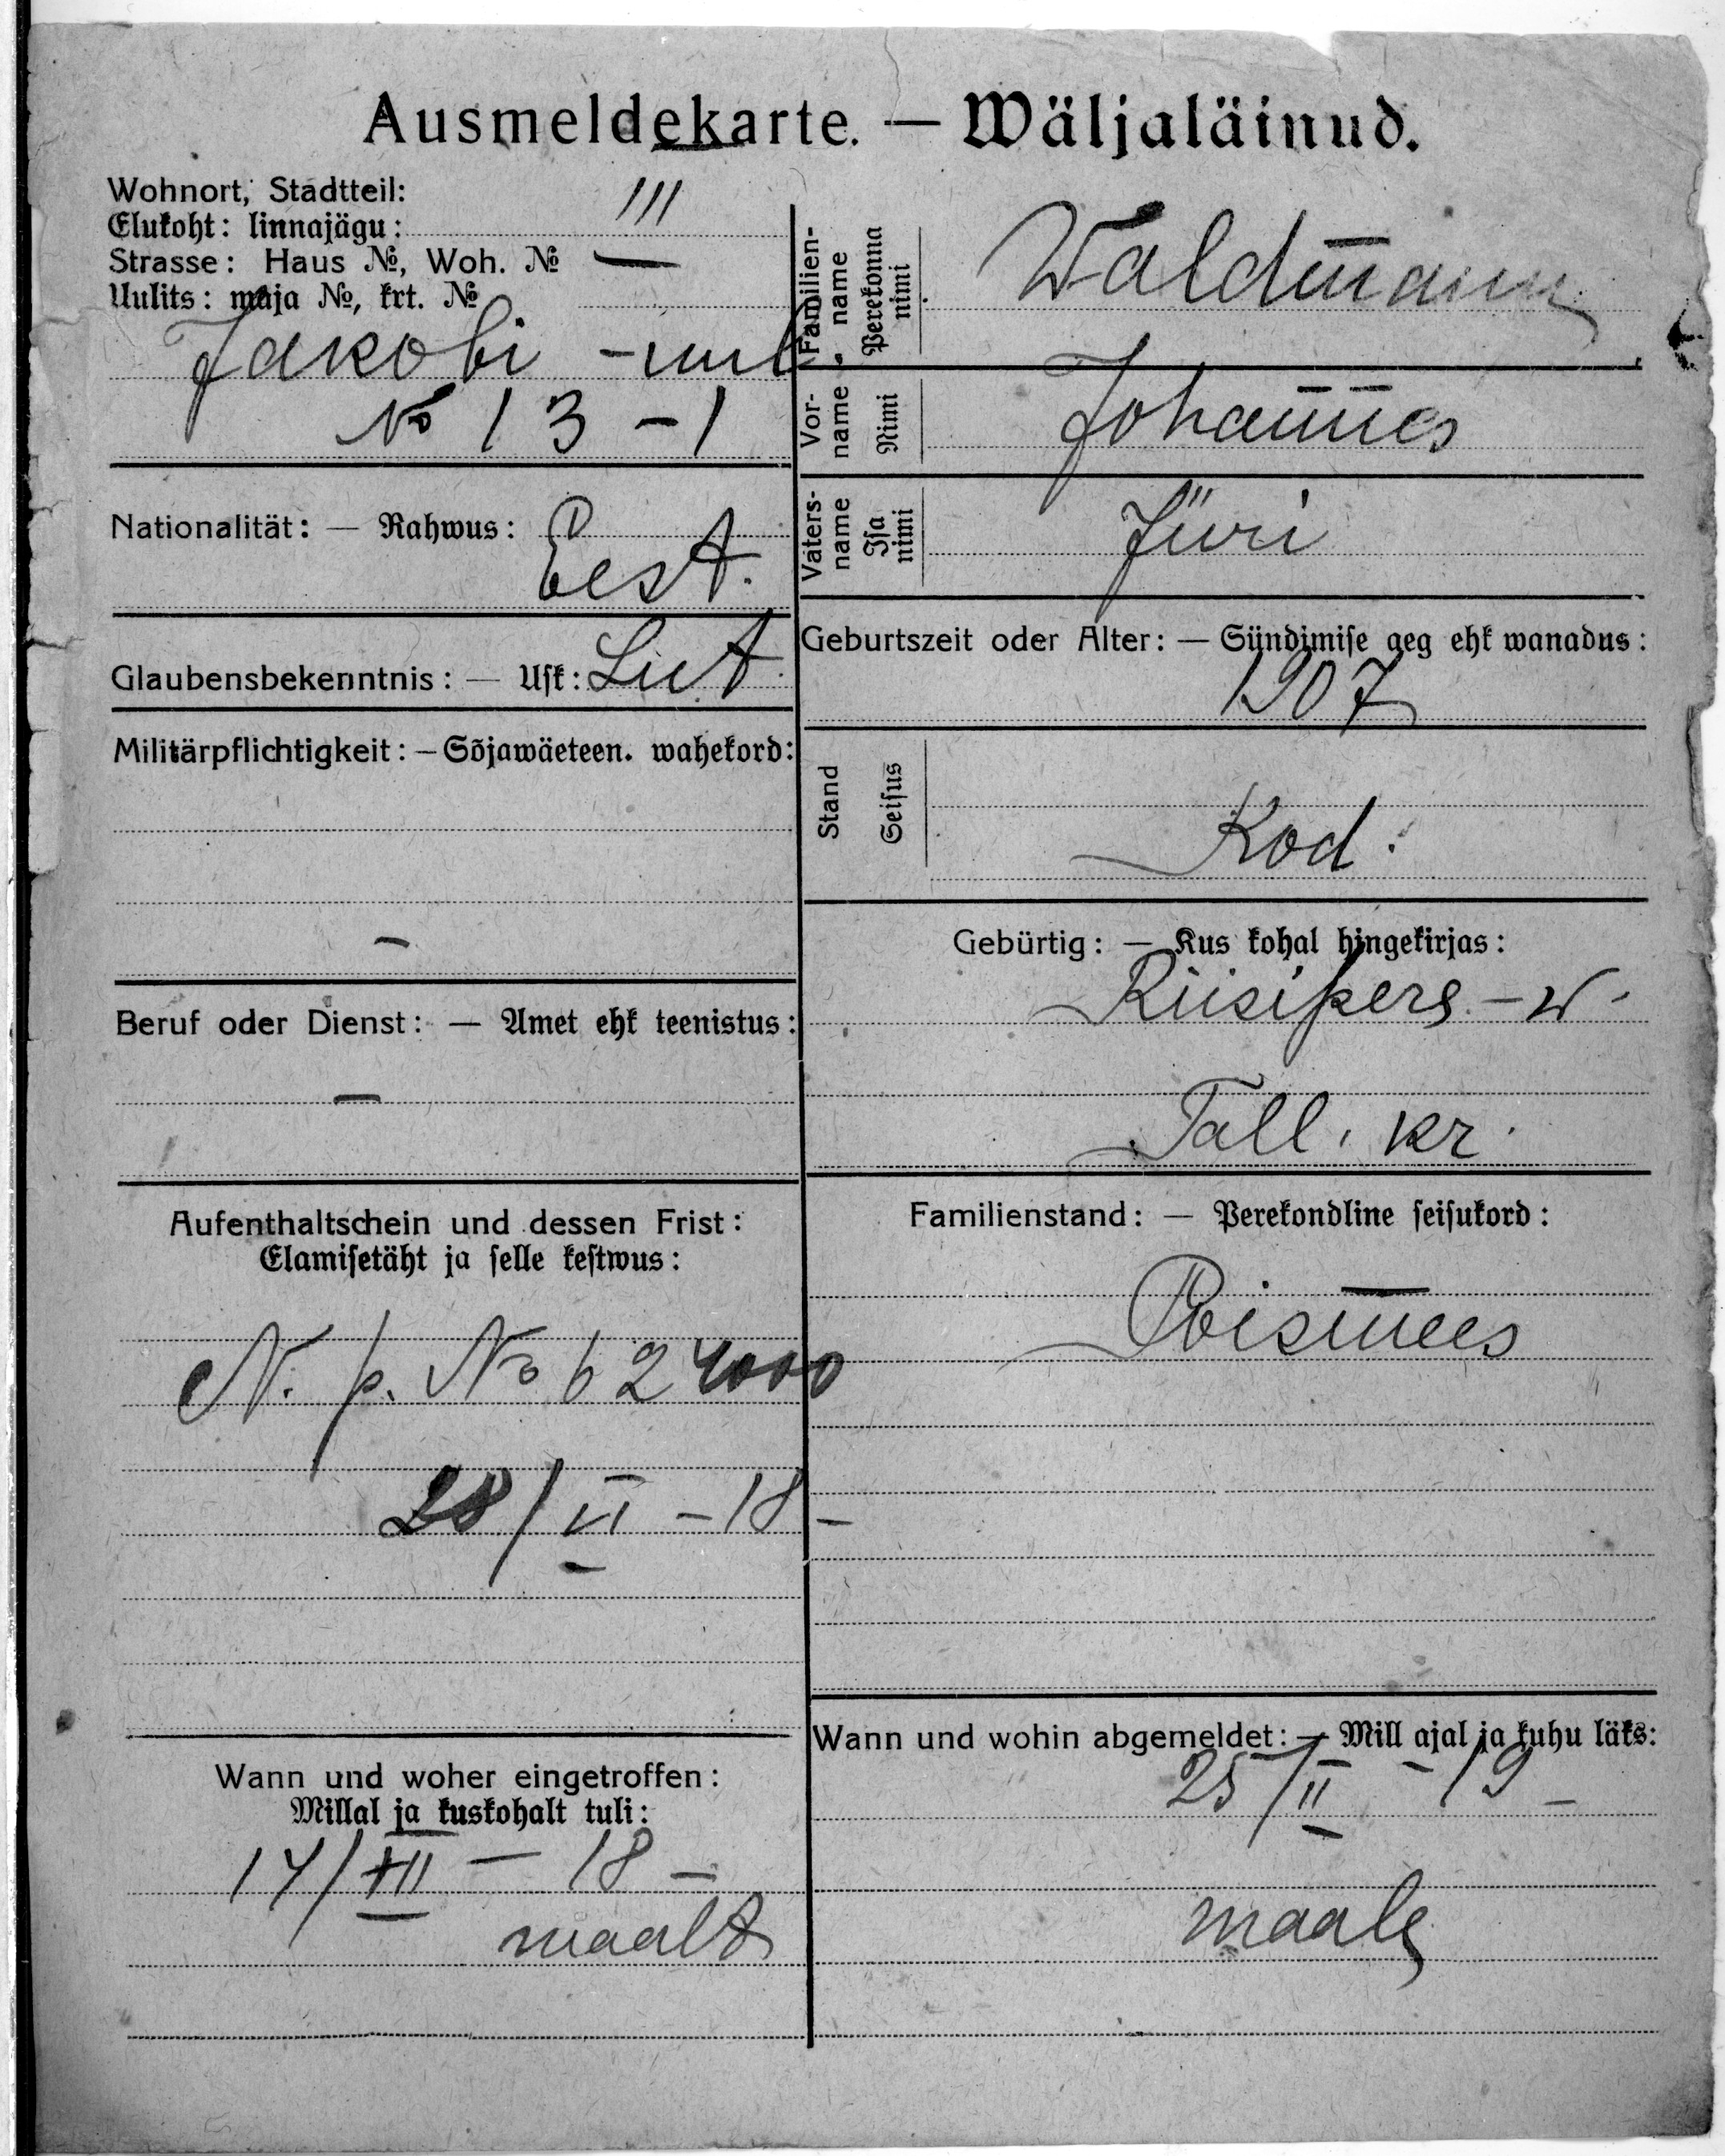 Ausmeldekarte. — Wäljaläinud.
Wohnort, Stadtteil:
Elukoht: linnajägu: III
Strasse: Haus №, Woh. № —
Uulits: maja №, krt. №
Jakobi - uul
№ 13 - 1
Nationalität: — Rahwus:
Eest.
Glaubensbekenntnis: — Usk: Lut
Militärpflichtigkeit: — Sõjawäeteen. wahekord:
—
Beruf oder Dienst: — Amet ehk teenistus:
—
Aufenthaltschein und dessen Frist:
Elamisetäht ja selle kestwus:
N. p. № 624000
28/VI - 18 -
Wann und woher eingetroffen:
Millal ja kuskohalt tuli:
14/XII — 18 —
maalt
Familien-
name
Perekonna
nimi
Waldmann
Vor-
name
Nimi
Johannes
Vaters-
name
Isa
nimi
Jüri
Geburtszeit oder Alter: — Sündimise aeg ehk wanadus:
1907
Stand
Seisus
Kod:
Gebürtig: — Kus kohal hingekirjas:
Riisipere - w.
Tall. kr.
Familienstand: — Perekondline seisukord:
Poismees
Wann und wohin abgemeldet: — Mill ajal ja kuhu läks:
25/II - 19 —
maale